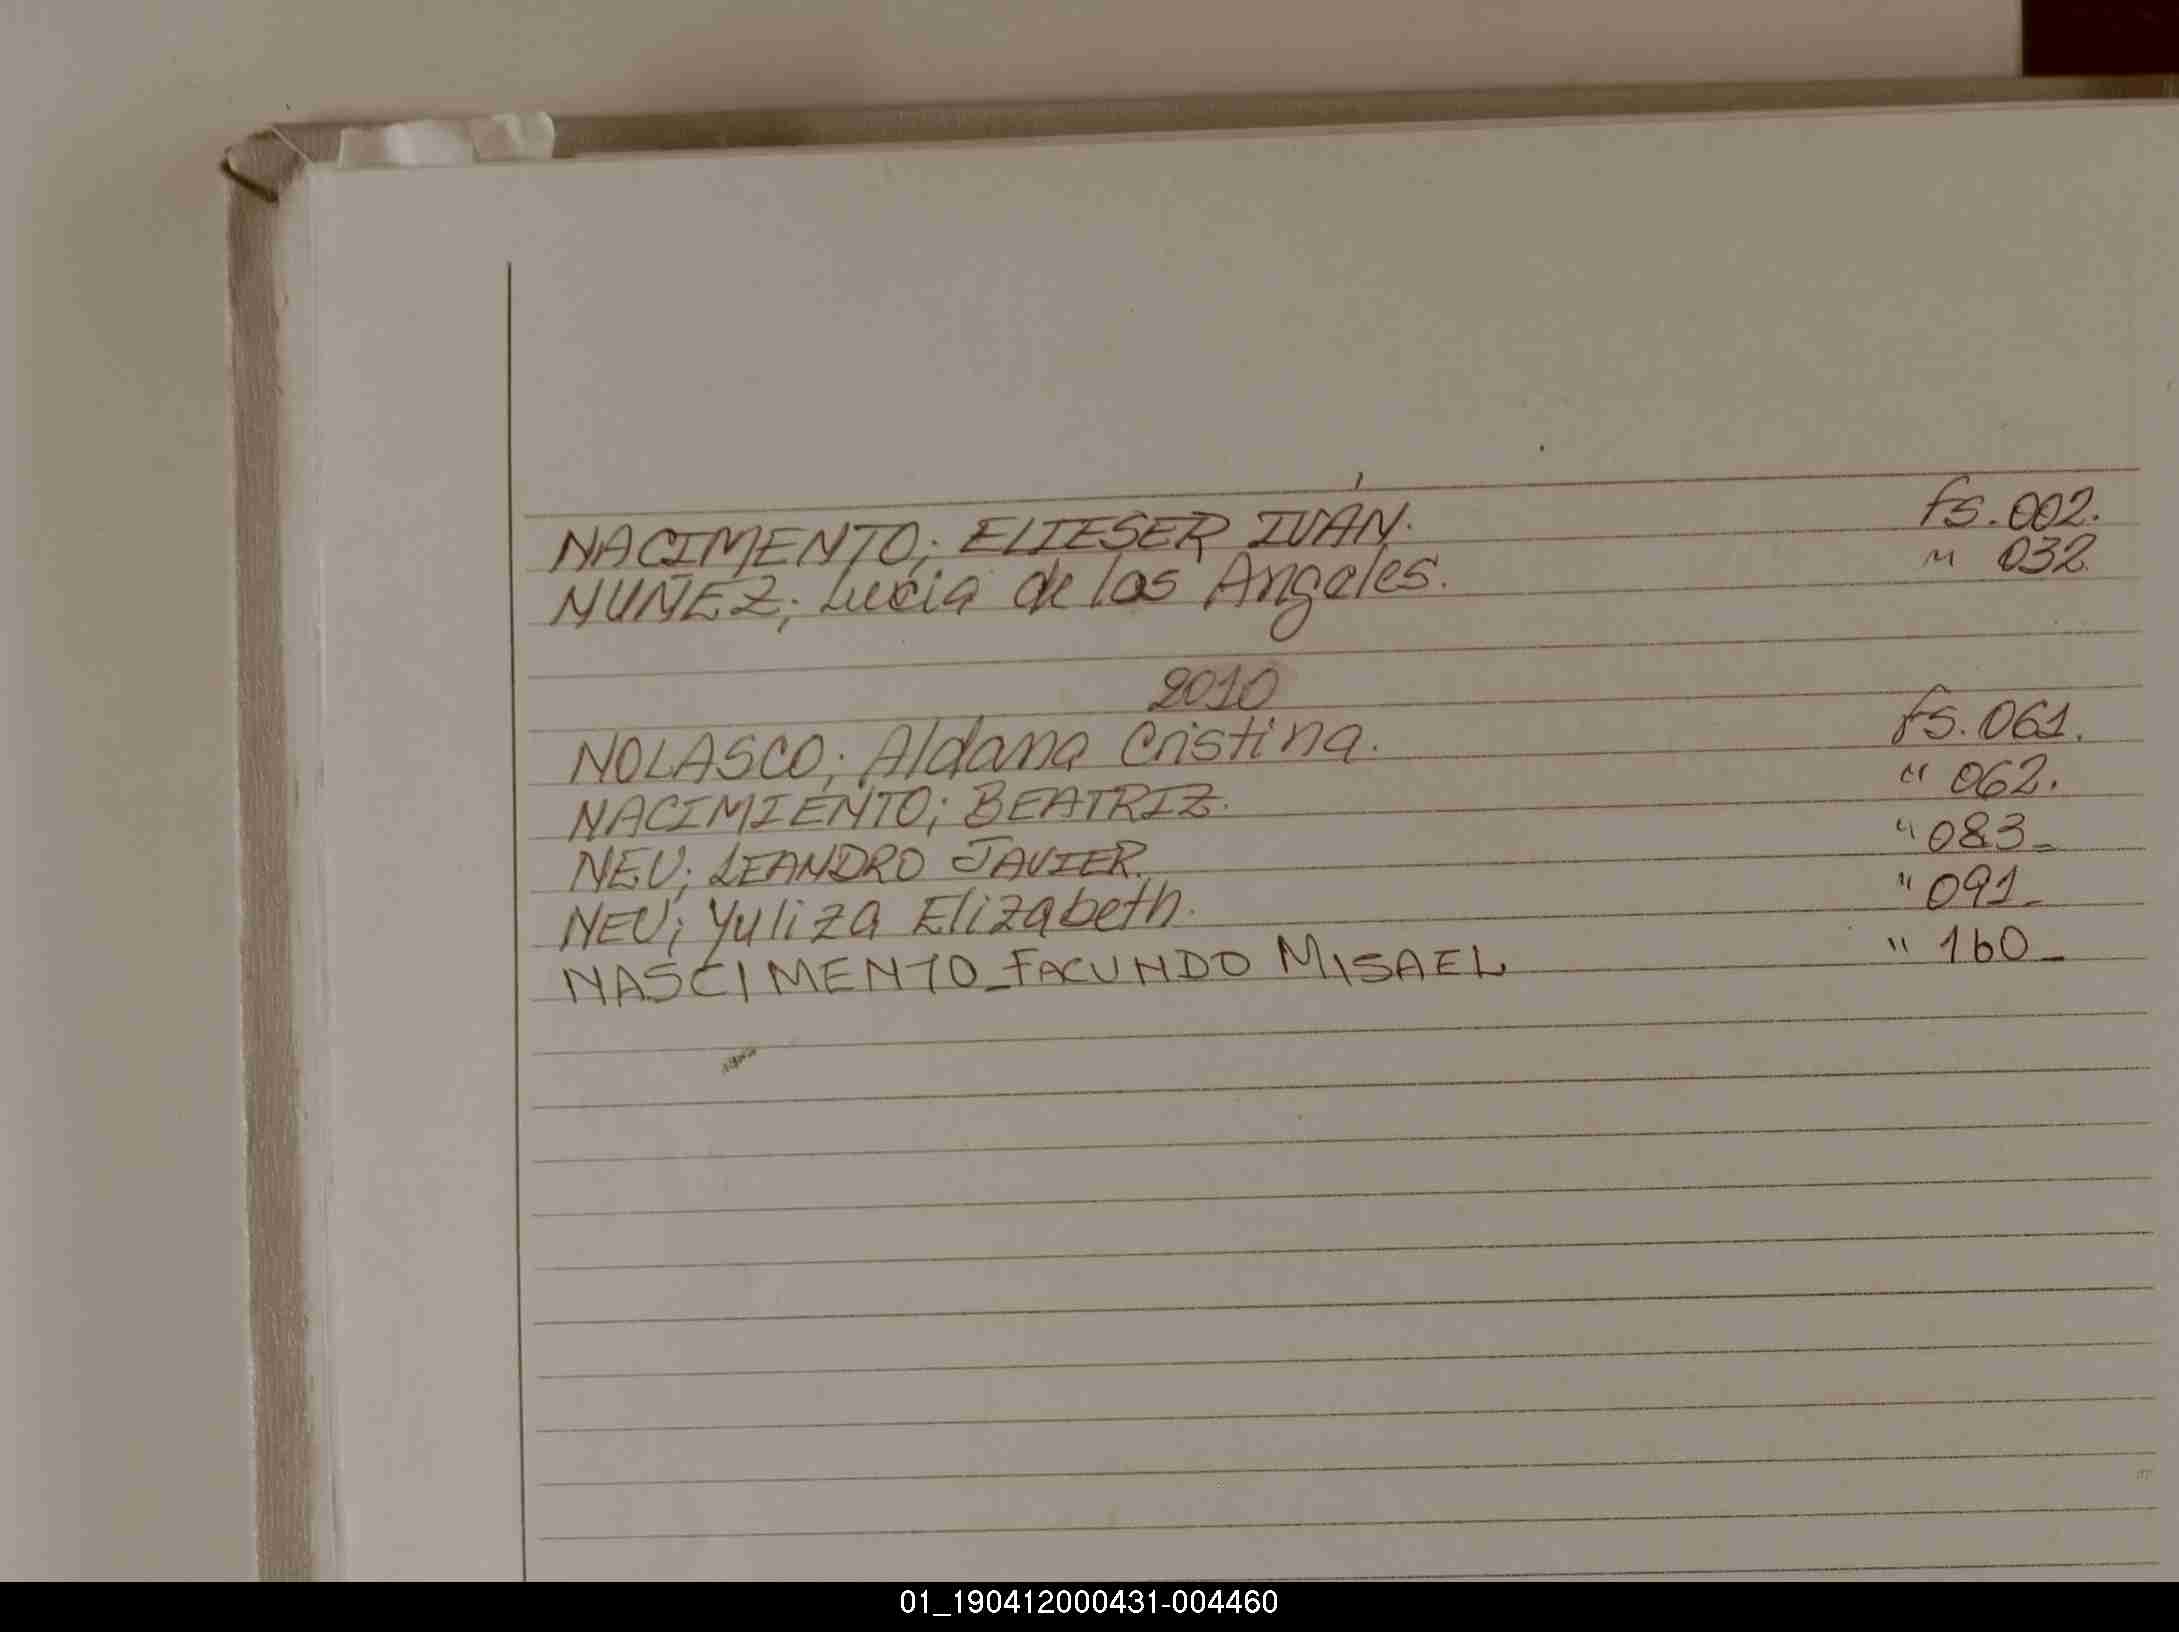 NACIMENTO; ELIESER IVÁN. fs. 002.
NUÑEZ; Lucia de los Angeles. " 032.
2010
NOLASCO; Aldana Cristina. fs. 061.
NACIMIENTO; BEATRIZ. " 062.
NEU; LEANDRO JAVIER. " 083_
NEU; Yuliza Elizabeth. " 091_
NASCIMENTO_FACUNDO MISAEL " 160_
01_190412000431-004460